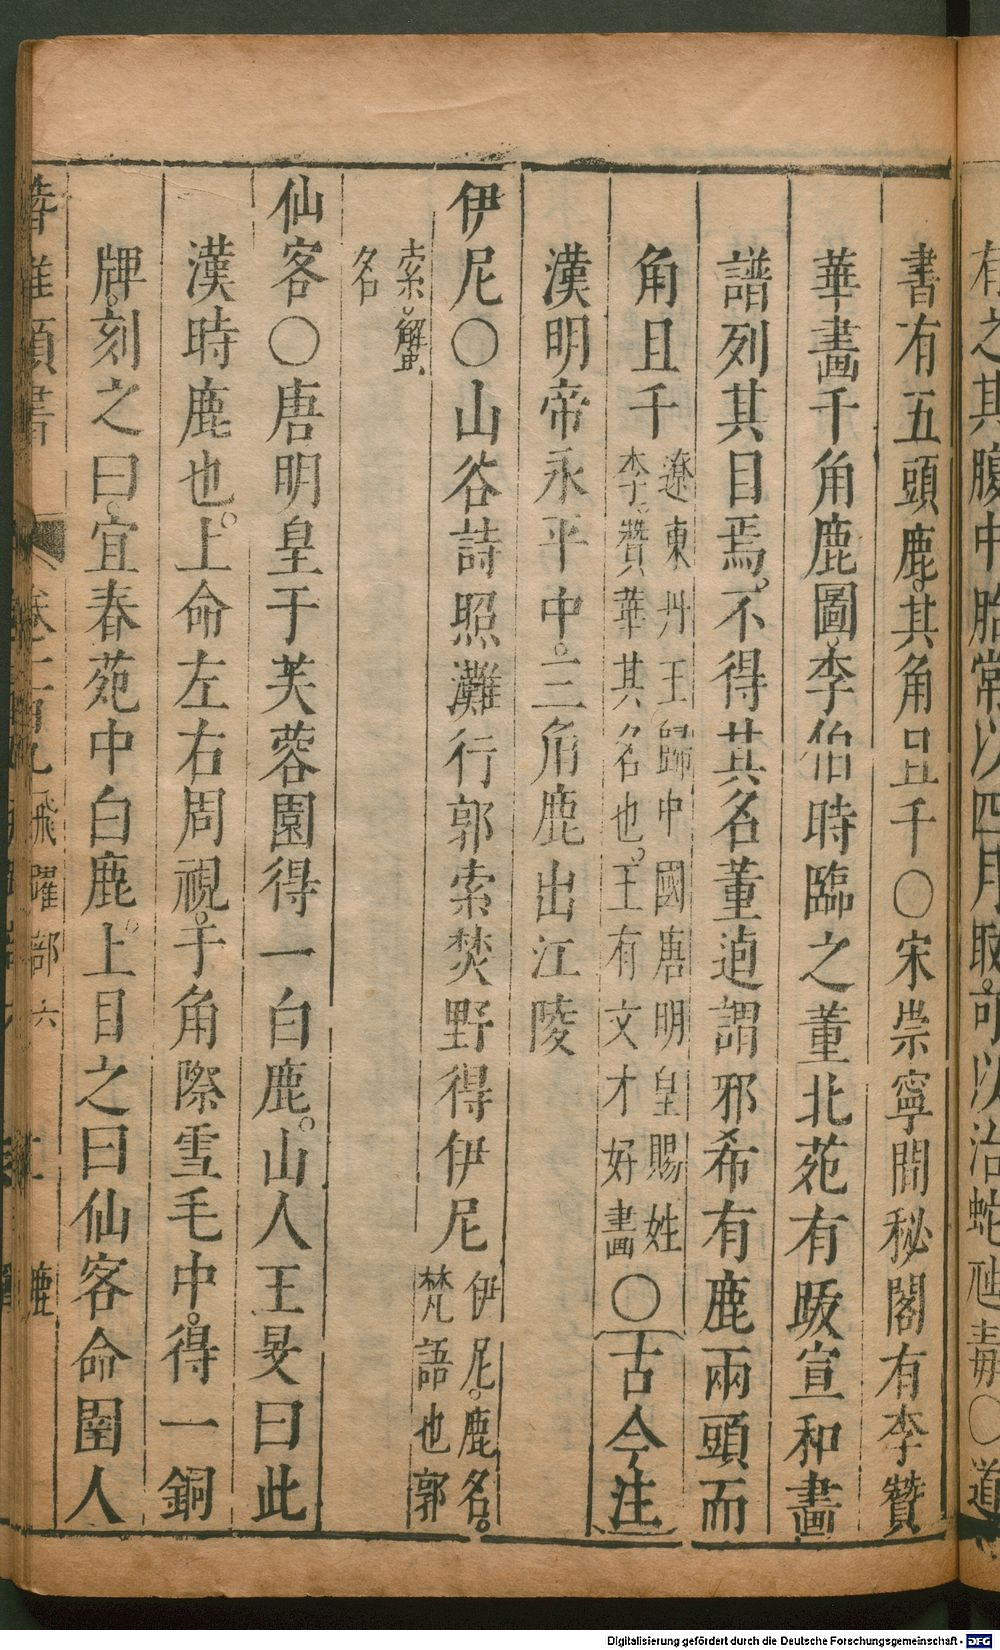 有之其腹中胎常以四月取可以治蛇虺毒〇道
書有五頭鹿其角且千〇宋崇寧間秘閣有李贊
華畫千角鹿圖李伯時臨之董北苑有䟦宣和畫
譜列其目焉不得其名董逌謂邪希有鹿兩頭而
角且千遼東丹王歸中國唐明皇賜姓
李贊華其名也王有文才好畫〇古今注
漢明帝永平中三角鹿出江陵
伊尼〇山谷詩照灘行郭索焚野得伊尼伊尼鹿名
梵語也郭
索蟹
名
仙客〇唐明皇于芙蓉園得一白鹿山人王旻曰此
漢時鹿也上命左右周視于角際雪毛中得一銅
牌刻之曰宜春苑中白鹿上目之曰仙客命圉人
類書 飛躍部六 鹿
Digitalisierung gefördert durch die Deutsche Forschungsgemeinschaft - DFG